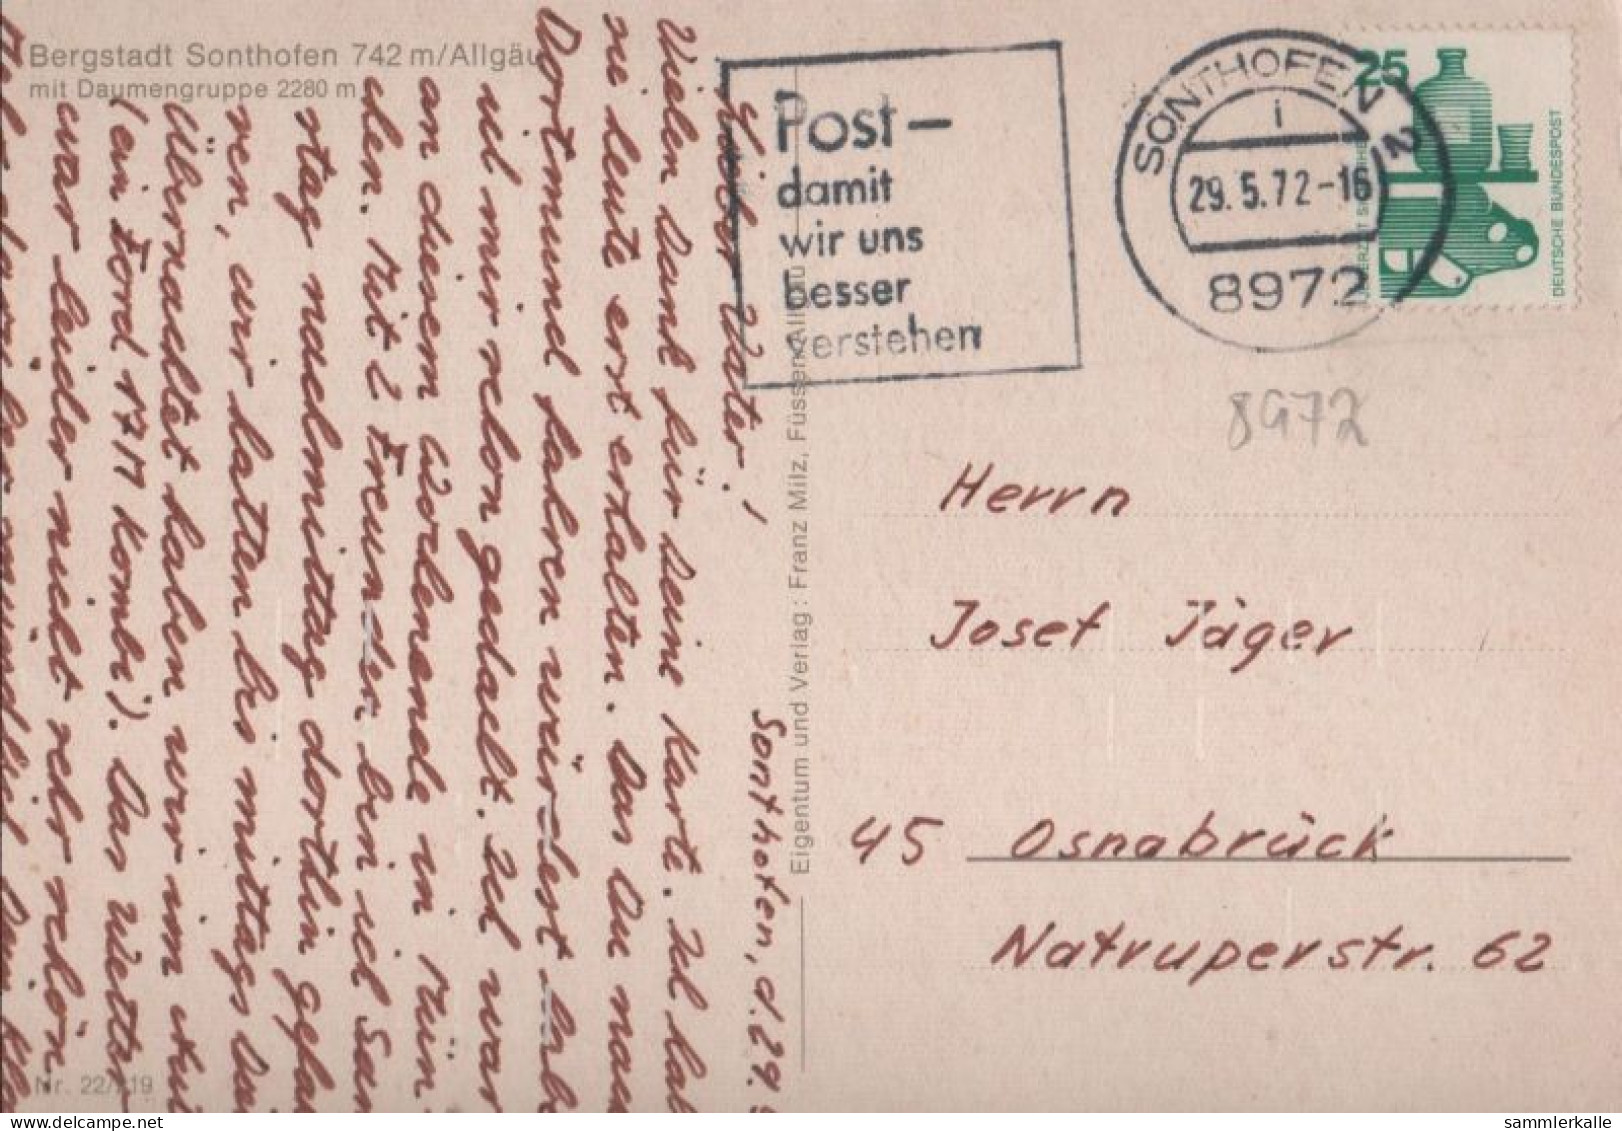 Bergstadt Sonthofen 742 m/Allgäu
mit Daumengruppe 2280 m
Post –
damit
wir uns
besser
verstehen
SONTHOFEN 2
i
29.5.72-16
8972
25
DEUTSCHE BUNDESPOST
8972
Herrn
Josef Jäger
45 Osnabrück
Natruperstr. 62
Eigentum und Verlag: Franz Milz, Füssen/Allgäu
Sonthofen, d. 29.
Lieber Vater!
Vielen Dank für Deine Karte. Ich hab
sie heute erst erhalten. Das Du nach
Dortmund fahren würdest hab
ich mir schon gedacht. Ich war
an diesem Wochenende in Mün
chen. Mit 2 Freunden bin ich Sam
stag nachmittag dorthin gefah
ren, wir hatten bis mittags
Übernachtet haben wir im Au
(ein Ford 17M Kombi). Das Wetter
war leider nicht sehr schön.
Nr. 22/219
sammlerkalle